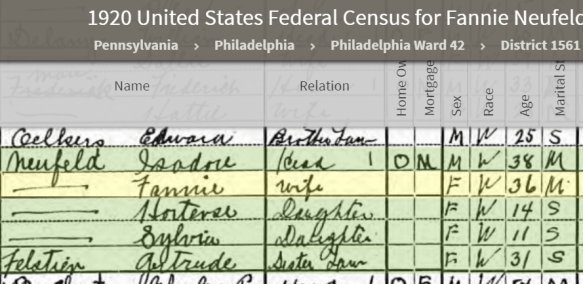 1920 United States Federal Census for Fannie Neufeld
Pennsylvania › Philadelphia › Philadelphia Ward 42 › District 1561
Name Relation Home Ow Mortgage Sex Race Age Marital St
Oelkers Edward Brother Law M W 25 S
Neufeld Isadore Head 1 O M M W 38 M
—— Fannie wife F W 36 M
—— Hortense Daughter F W 14 S
—— Sylvia Daughter F W 11 S
Felstien Gertrude Sister Law F W 31 S